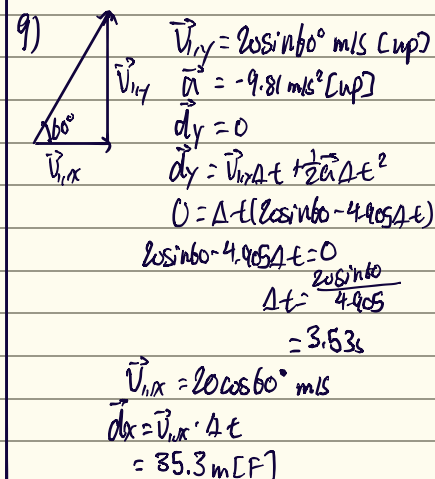 9)
V⃗₁,y = 20sin60° m/s [up]
60°
V⃗₁,y
V⃗₁,x
a⃗ = -9.81 m/s² [up]
d⃗y = 0
d⃗y = V⃗₁,yΔt + ½a⃗Δt²
0 = Δt(20sin60 - 4.905Δt)
20sin60 - 4.905Δt = 0
Δt = 20sin60/4.905
= 3.53s
V⃗₁,x = 20cos60° m/s
d⃗x = V⃗₁,x · Δt
= 35.3 m [F]